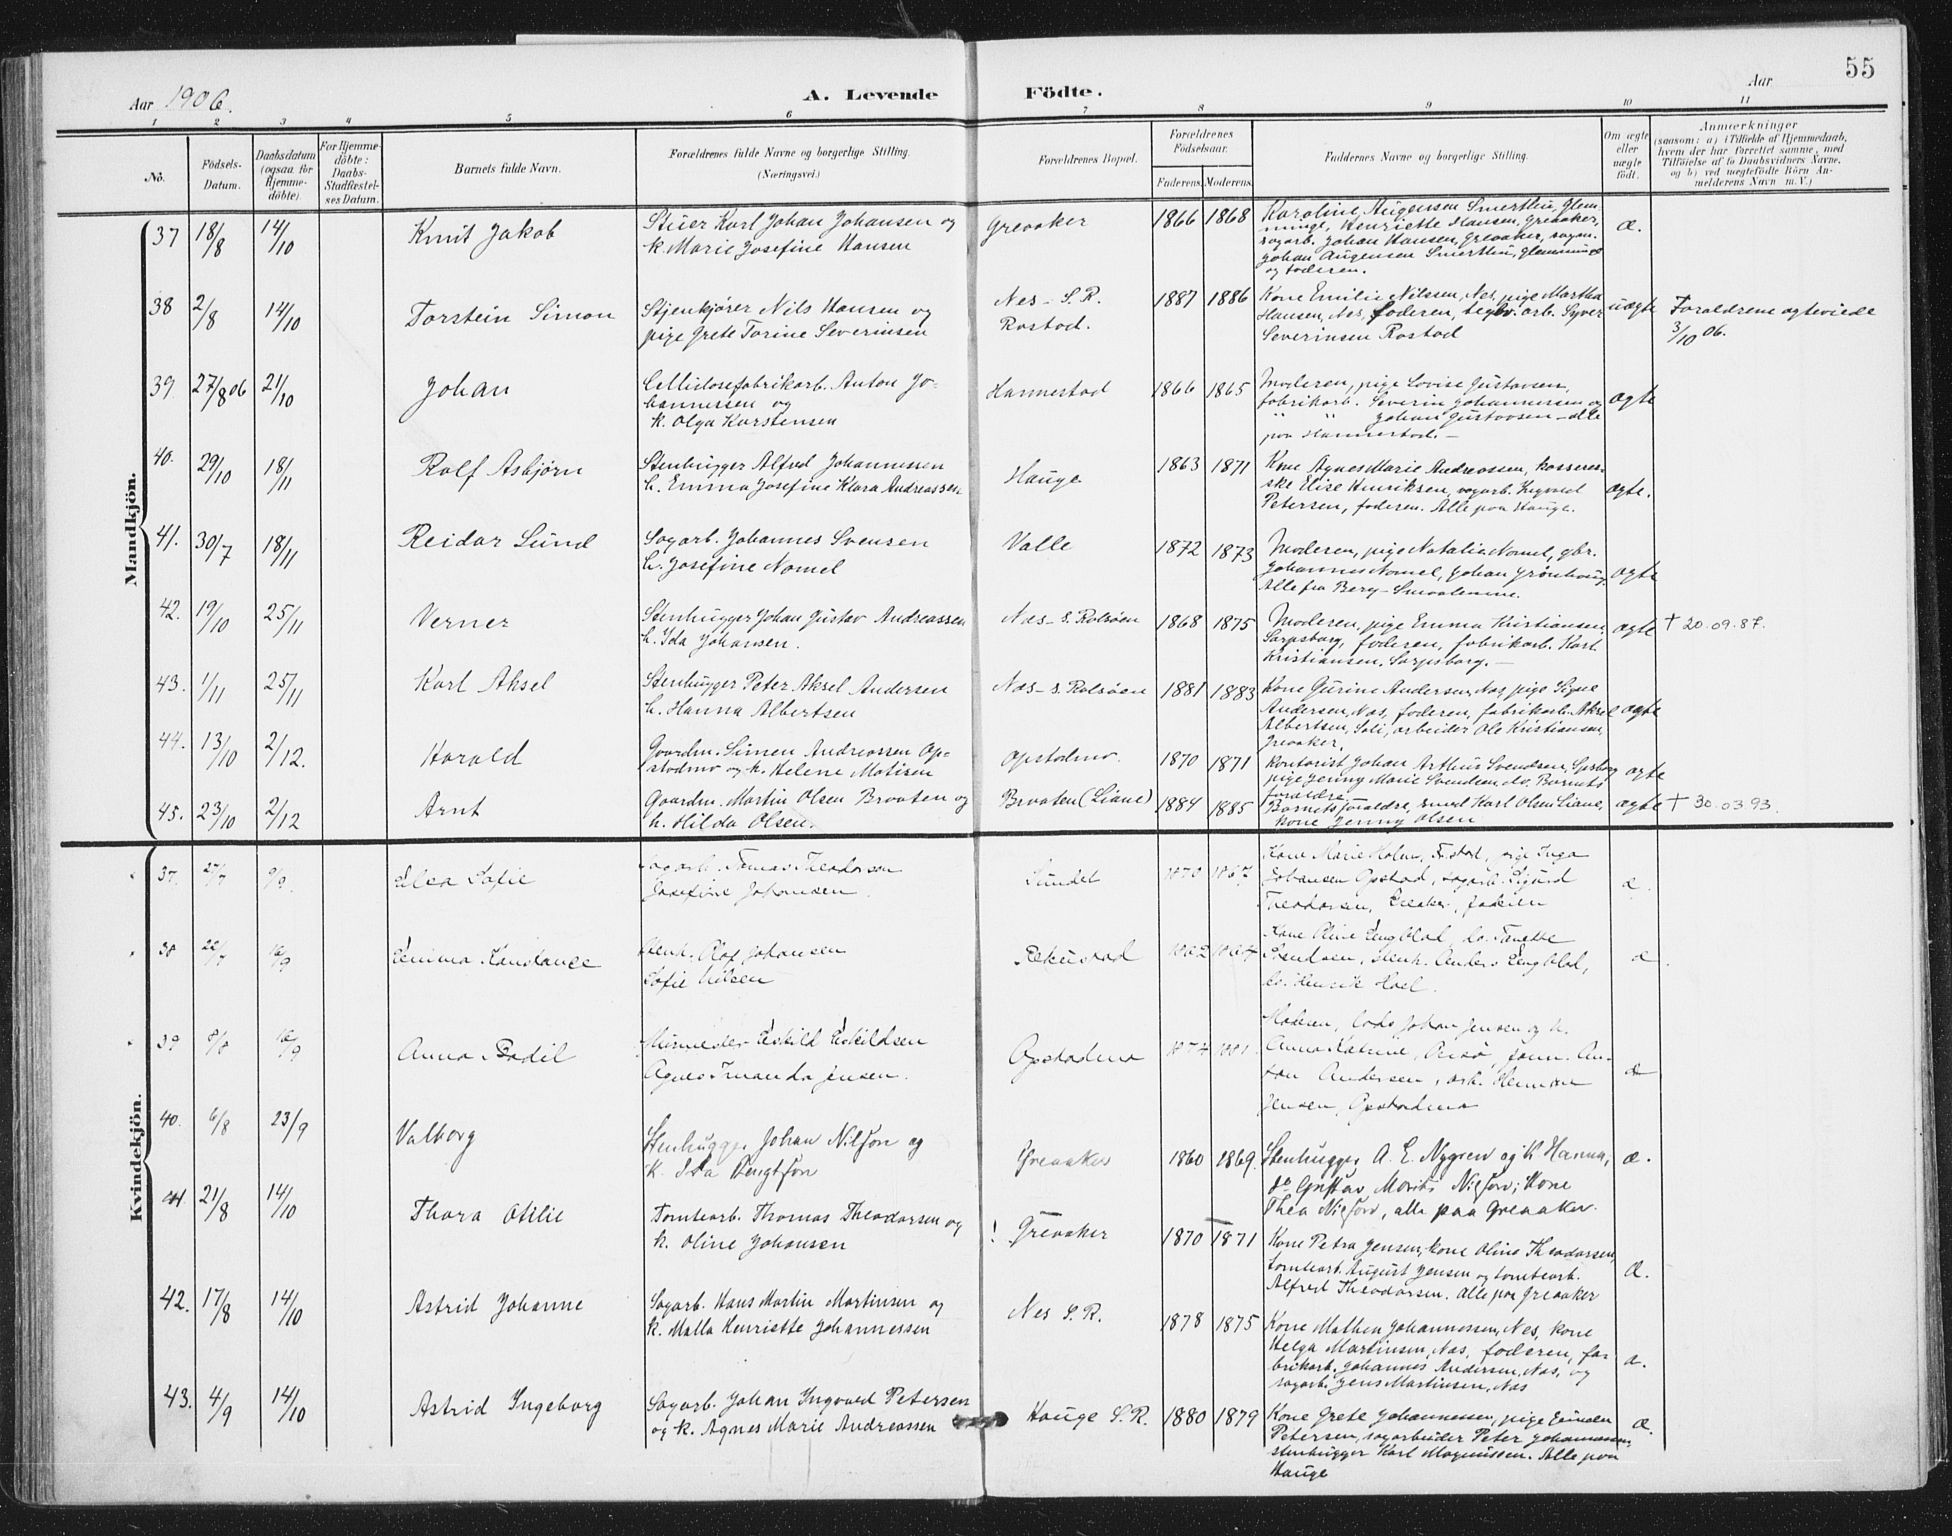 55
Aar 1906. A. Levende Födte. Aar
1 2 3 4 5 6 7 8 9 10 11
No. Födsels-Datum. Daabsdatum (ogsaa for Hjemme-döbte). For Hjemme-döbte: Daabs-Stadfæstel-ses Datum. Barnets fulde Navn. Forældrenes fulde Navne og borgerlige Stilling. (Næringsvei.) Forældrenes Bopæl. Forældrenes Födselsaar. Faderens. Moderens. Faddernes Navne og borgerlige Stilling. Om ægte eller uægte födt. Anmærkninger
(saasom: a) i Tilfælde af Hjemmedaab,
hvem der har forrettet samme, med
Tilföielse af to Daabsvidners Navne,
og b) ved uægtefödte Börn An-
melderens Navn m. V.)
Mandkjön.
37 18/8 14/10 Knut Jakob
Stuer Karl Johan Johansen og
k. Marie Josefine Hansen
Greaaker 1866 1868
Karoline Augensen Smerthu, Glem-
minge, Henriette Hansen, Greaaker,
sagarb. Johan Hansen, Greaaker,
Johan Augensen Smerthu, Glemminge
og faderen.
æ.
38 2/8 14/10 Torstein Simon
Stenkjører Nils Hansen og
pige Grete Torine Severinsen
Nes - S. R.
Rostad.
1887 1886
Kone Emilie Nilssen, Nes, pige Martha
Hansen, Nes, faderen, teglv. arb. Syver
Severinsen Rostad
uægte
Forældrene ægteviede
3/10 06.
39 27/8 06 21/10 Johan
Cellulosefabrikarb. Anton Jo-
hannessen og
k. Olga Karstensen
Hannestad 1866 1865
Moderen, pige Lovise Gustavsen,
fabrikarb. Severin Johannessen og
" " Johan Gustavsen - alle
paa Hannestad. -
ægte
40. 29/10 18/11 Rolf Asbjørn
Stenhugger Alfred Johannessen
h. Emma Josefine Klara Andreassen
Hauge 1863 1871
Kone Agnes Marie Andreassen, kassereske
Elise Henriksen, sagarb. Ingvald
Petersen, faderen. Alle paa Hauge.
ægte.
41. 30/7 18/11 Reidar Lund
Sagarb. Johannes Svensen
h. Josefine Nomel
Valle 1872 1873
Moderen, pige Natalia Nomel, gbr.
Johannes Nomel, Johan Grønhoug,
Alle fra Berg - Smaalenene.
ægte
42. 19/10 25/11 Verner
Stenhugger Johan Gustav Andreassen
h. Ida Johansen.
Næs - S. Rolsøen 1868 1875
Moderen, pige Emma Kristiansen,
Sarpsborg, faderen, fabrikarb. Karl
Kristiansen, Sarpsborg. -
ægte † 20.09.87.
43. 1/11 25/11 Karl Aksel
Stenhugger Peter Aksel Andersen
h. Hanna Albertsen
Næs - S. Rolsøen 1881 1883
Kone Gurine Andersen, Næs, pige Signe
Andersen, Næs, faderen, fabrikarb. Aksel
Albertsen, Soli, arbeider Ole Kristiansen,
Greaaker.
ægte
44. 13/10 2/12. Harald
Gaardm. Simen Andreassen Op-
stadmo og h. Helene Matisen
Opstadmo. 1870 1871
Kontorist Johan Arthur Svendsen, Spsborg
pige Jenny Marie Svendsen, do. Barnets
forældre.
ægte
45. 23/10 2/12 Arnt
Gaardm. Martin Olsen Braaten og
h. Hilda Olsen.
Braaten (Liane) 1884 1885
Barnets forældre, smed Karl Olsen Liane,
kone Jenny Olsen
ægte † 30.03.93.
Kvindekjön.
37. 27/7 9/9. Elea Sofie
Sagarb. Tomas Teodorsen
Josefine Johansen.
Sundet 1870 1867
Kone Marie Holm, pige Inga
Johansen Opstad, sagarb. Sigurd
Theodorsen, Greaaker, faderen
æ.
38 22/7 16/9 Emma Konstance
Stenh. Olaf Johansen
Sofie Nilsen
1862 1864
Kone Oline Engblad, do. Tanette
Svendsen, stenh. Anders Engblad,
do. Henrik Hoel.
æ.
39 8/8 16/9 Anna Bodil
Murmester Eskild Eskildsen
Agnes Amanda Jensen.
Opstadmo 1874 1881
Moderen, lods Johan Jensen og h.
Anna Katrine, An-
ton Andersen, arb. Herman
Jensen, Opstadmo
æ
40. 6/8 23/9 Valborg
Stenhugger Johan Nilson og
k. Ida Bengtson
Greaaker 1860 1869
Stenhugger A. E. Nygren og k Hanna,
do Gustav Morits Nilson; Kone
Thea Nilson, alle paa Greaaker.
æ.
41 21/8 14/10 Thora Otilie
Tomtearb. Thomas Theodorsen og
k. Oline Johansen
! Greaaker 1870 1871
Kone Petra Jensen, kone Oline Theodorsen,
tomtearb. August Jensen og tomtearb.
Alfred Theodorsen. Alle paa Greaaker
æ.
42. 17/8 14/10 Astrid Johanne
Sagarb. Hans Martin Martinsen og
k. Malla Henriette Johannessen
Nes S. R. 1878 1875
Kone Mathea Johannessen, Nes, kone
Helga Martinsen, Næs, faderen, fa-
brikarb. Johannes Andersen, Næs, og
sagarb. Jens Martinsen, Næs
æ.
43. 4/9 14/10 Astrid Ingeborg
Sagarb. Johan Ingvald Petersen
og k. Agnes Marie Andreassen
Hauge S. R. 1880 1879
Kone Grete Johannessen, pige
Petersen, sagarbeider Peter Johannessen,
stenhugger Karl Magnussen. Alle paa
Hauge
æ.